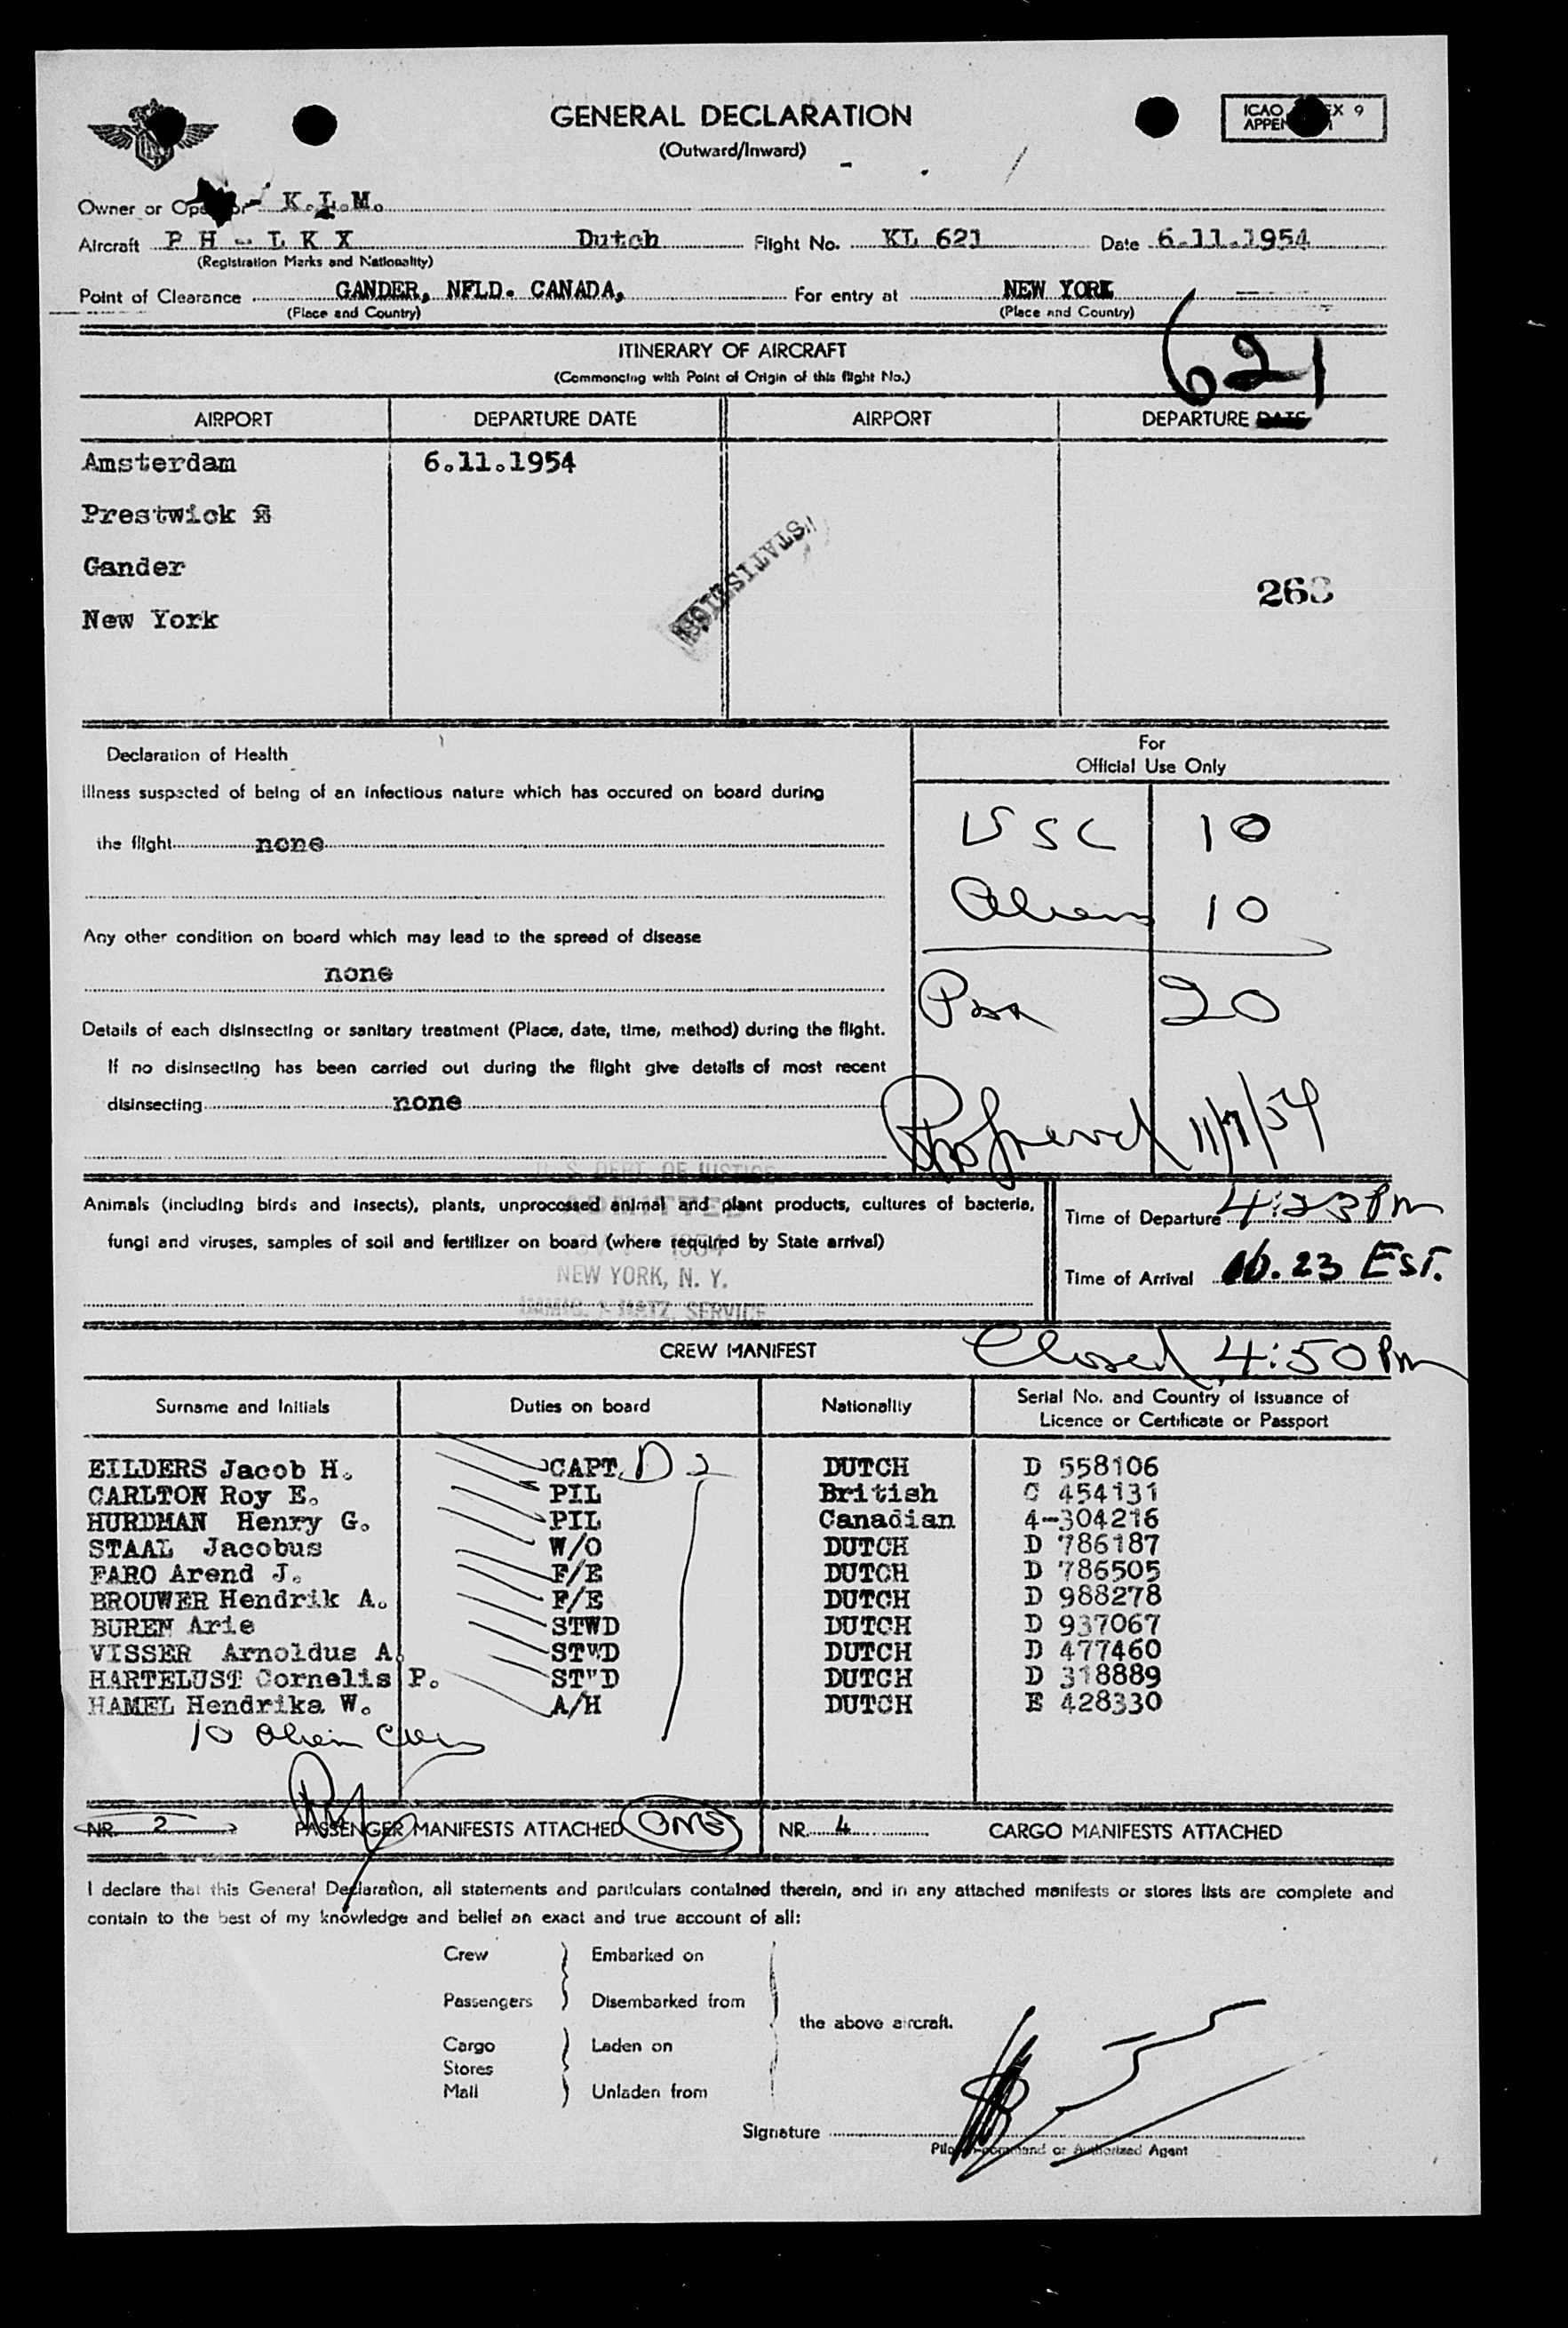 GENERAL DECLARATION
(Outward/Inward)
ICAO X 9
Owner or Op or K.L.M.
Aircraft P H - L K X Dutch Flight No. KL 621 Date 6.11.1954
(Registration Marks and Nationality)
Point of Clearance GANDER, NFLD. CANADA, For entry at NEW YORK
(Place and Country) (Place and Country)
621
ITINERARY OF AIRCRAFT
(Commencing with Point of Origin of this flight No.)
AIRPORT DEPARTURE DATE AIRPORT DEPARTURE DATE
Amsterdam 6.11.1954
Prestwick
Gander
New York
STATISTICS
268
Declaration of Health
For
Official Use Only
Illness suspected of being of an infectious nature which has occured on board during
the flight none
USC 10
Aliens 10
Any other condition on board which may lead to the spread of disease
none
Pax 20
Details of each disinsecting or sanitary treatment (Place, date, time, method) during the flight.
If no disinsecting has been carried out during the flight give details of most recent
disinsecting none
11/7/54
U.S. DEPT. OF JUSTICE
ADMITTED
1954
NEW YORK, N. Y.
IMMIG. & NATZ. SERVICE
Animals (including birds and insects), plants, unprocessed animal and plant products, cultures of bacteria,
fungi and viruses, samples of soil and fertilizer on board (where required by State arrival)
Time of Departure 4:23 PM
Time of Arrival 16.23 EST.
CREW MANIFEST
Closed 4:50 PM
Surname and Initials Duties on board Nationality Serial No. and Country of issuance of
Licence or Certificate or Passport
EILDERS Jacob H. CAPT. D 2 DUTCH D 558106
CARLTON Roy E. PIL British C 454131
HURDMAN Henry G. PIL Canadian 4-304216
STAAL Jacobus W/O DUTCH D 786187
FARO Arend J. F/E DUTCH D 786505
BROUWER Hendrik A. F/E DUTCH D 988278
BUREN Arie STWD DUTCH D 937067
VISSER Arnoldus A. STWD DUTCH D 477460
HARTELUST Cornelis P. ST"D DUTCH D 318889
HAMEL Hendrika W. A/H DUTCH E 428330
10 Alien Crew
NR. 2 PASSENGER MANIFESTS ATTACHED ONE NR. 4 CARGO MANIFESTS ATTACHED
I declare that this General Declaration, all statements and particulars contained therein, and in any attached manifests or stores lists are complete and
contain to the best of my knowledge and belief an exact and true account of all:
Crew Embarked on
Passengers Disembarked from
the above aircraft.
Cargo Laden on
Stores
Mail Unladen from
Signature
Pilot command or Authorized Agent